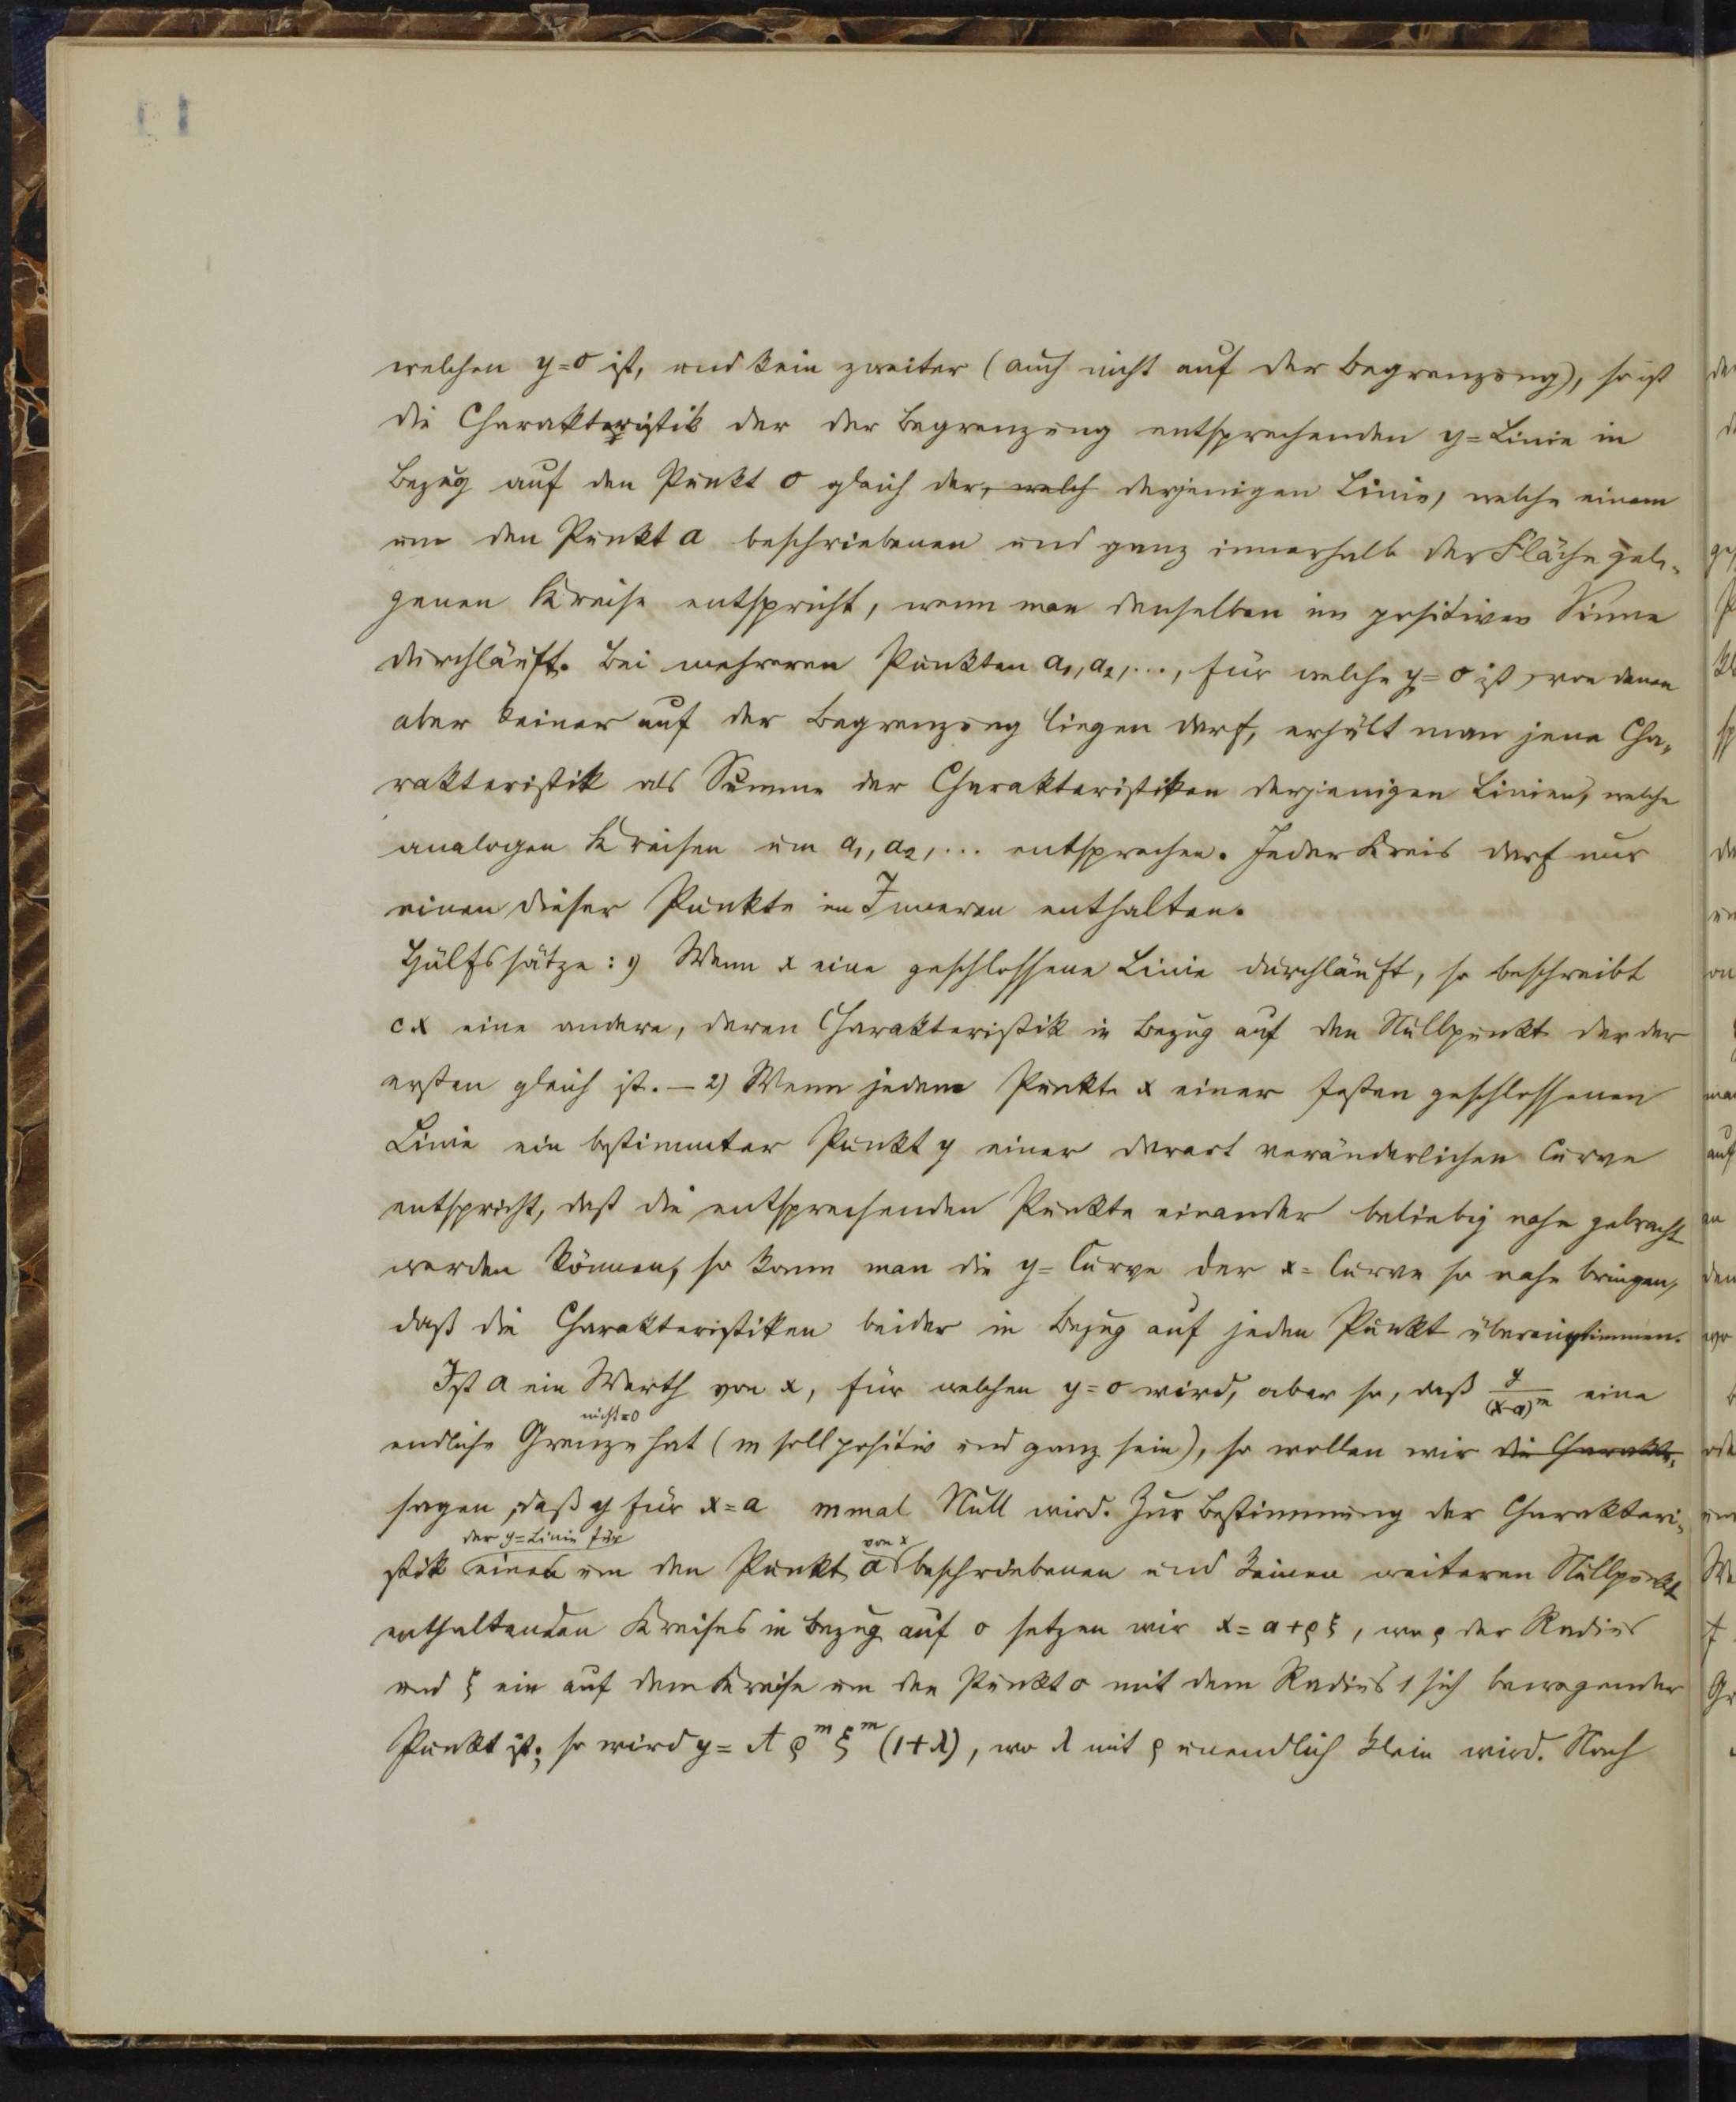 welchen y=0 ist, und kein zweiter (auch nicht auf der Begrenzung), so ist
die Charakteristik der der Begrenzung entsprechenden y=Linie in
Bezug auf den Punkt 0 gleich der, welch derjenigen Linie, welche einem
um den Punkt a beschriebenen und ganz innerhalb der Fläche gele-
genen Kreise entspricht, wenn man denselben im positiven Sinne
durchläuft. Bei mehreren Punkten a₁, a₂, ..., für welche y=0 ist, von denen
aber keiner auf der Begrenzung liegen darf, erhält man jene Cha-
rakteristik als Summe der Charakteristiken derjenigen Linien, welche
analogen Kreisen um a₁, a₂, ... entsprechen. Jeder Kreis darf nur
einen dieser Punkte im Inneren enthalten.
Hülfssätze: 1) Wenn x eine geschlossene Linie durchläuft, so beschreibt
cx eine andere, deren Charakteristik in Bezug auf den Nullpunkt der der
ersten gleich ist. — 2) Wenn jedem Punkte x einer festen geschlossenen
Linie ein bestimmter Punkt y einer derart veränderlichen Curve
entspricht, daß die entsprechenden Punkte einander beliebig nahe gebracht
werden können, so kann man die y=Curve der x=Curve so nahe bringen,
daß die Charakteristiken beider in Bezug auf jeden Punkt übereinstimmen.
Ist a ein Werth von x, für welchen y=0 wird, aber so, daß y/(x-a)^m eine
nicht=0
endliche Grenze hat (m soll positiv und ganz sein), so wollen wir die Charakte-
sagen, daß y für x=a mmal Null wird. Zur Bestimmung der Charakteri-
der y=Linie für von x
stik eines um den Punkt a beschriebenen und keinen weiteren Nullpunkt
enthaltenden Kreises in Bezug auf 0 setzen wir x=a+ρξ, wo ρ der Radius
und ξ ein auf dem Kreise um den Punkt 0 mit dem Radius 1 sich bewegender
Punkt ist; so wird y= A ρ^m ξ^m (1+λ), wo λ mit ρ unendlich klein wird. Nach